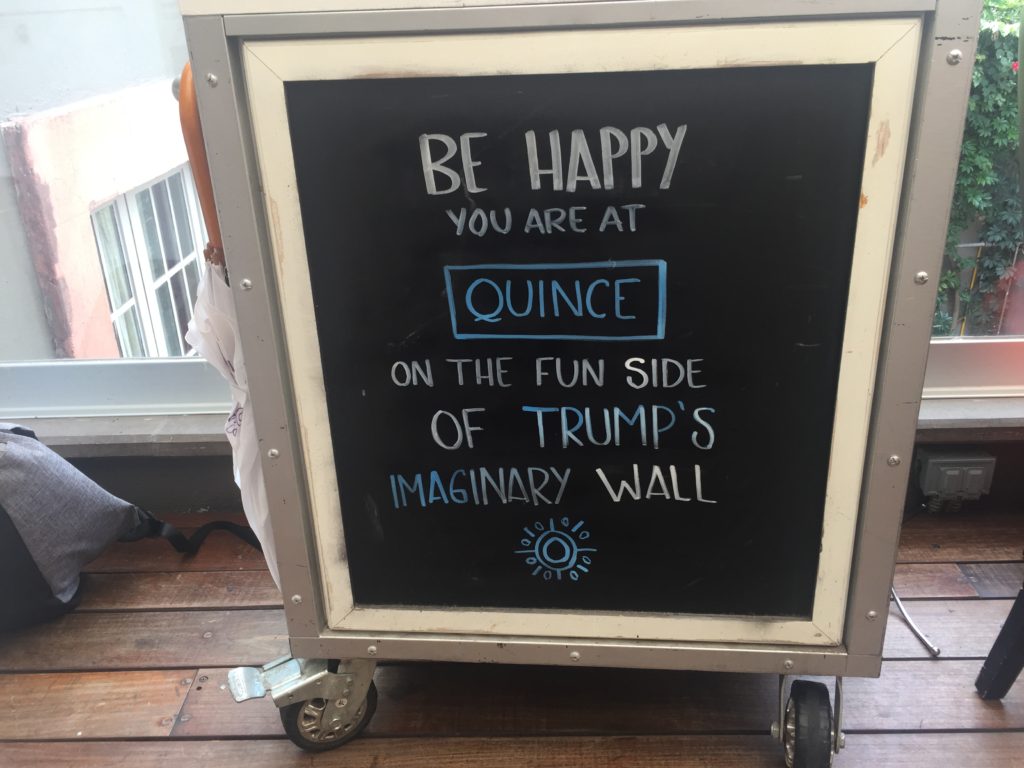 BE HAPPY
YOU ARE AT
QUINCE
ON THE FUN SIDE
OF TRUMP'S
IMAGINARY WALL